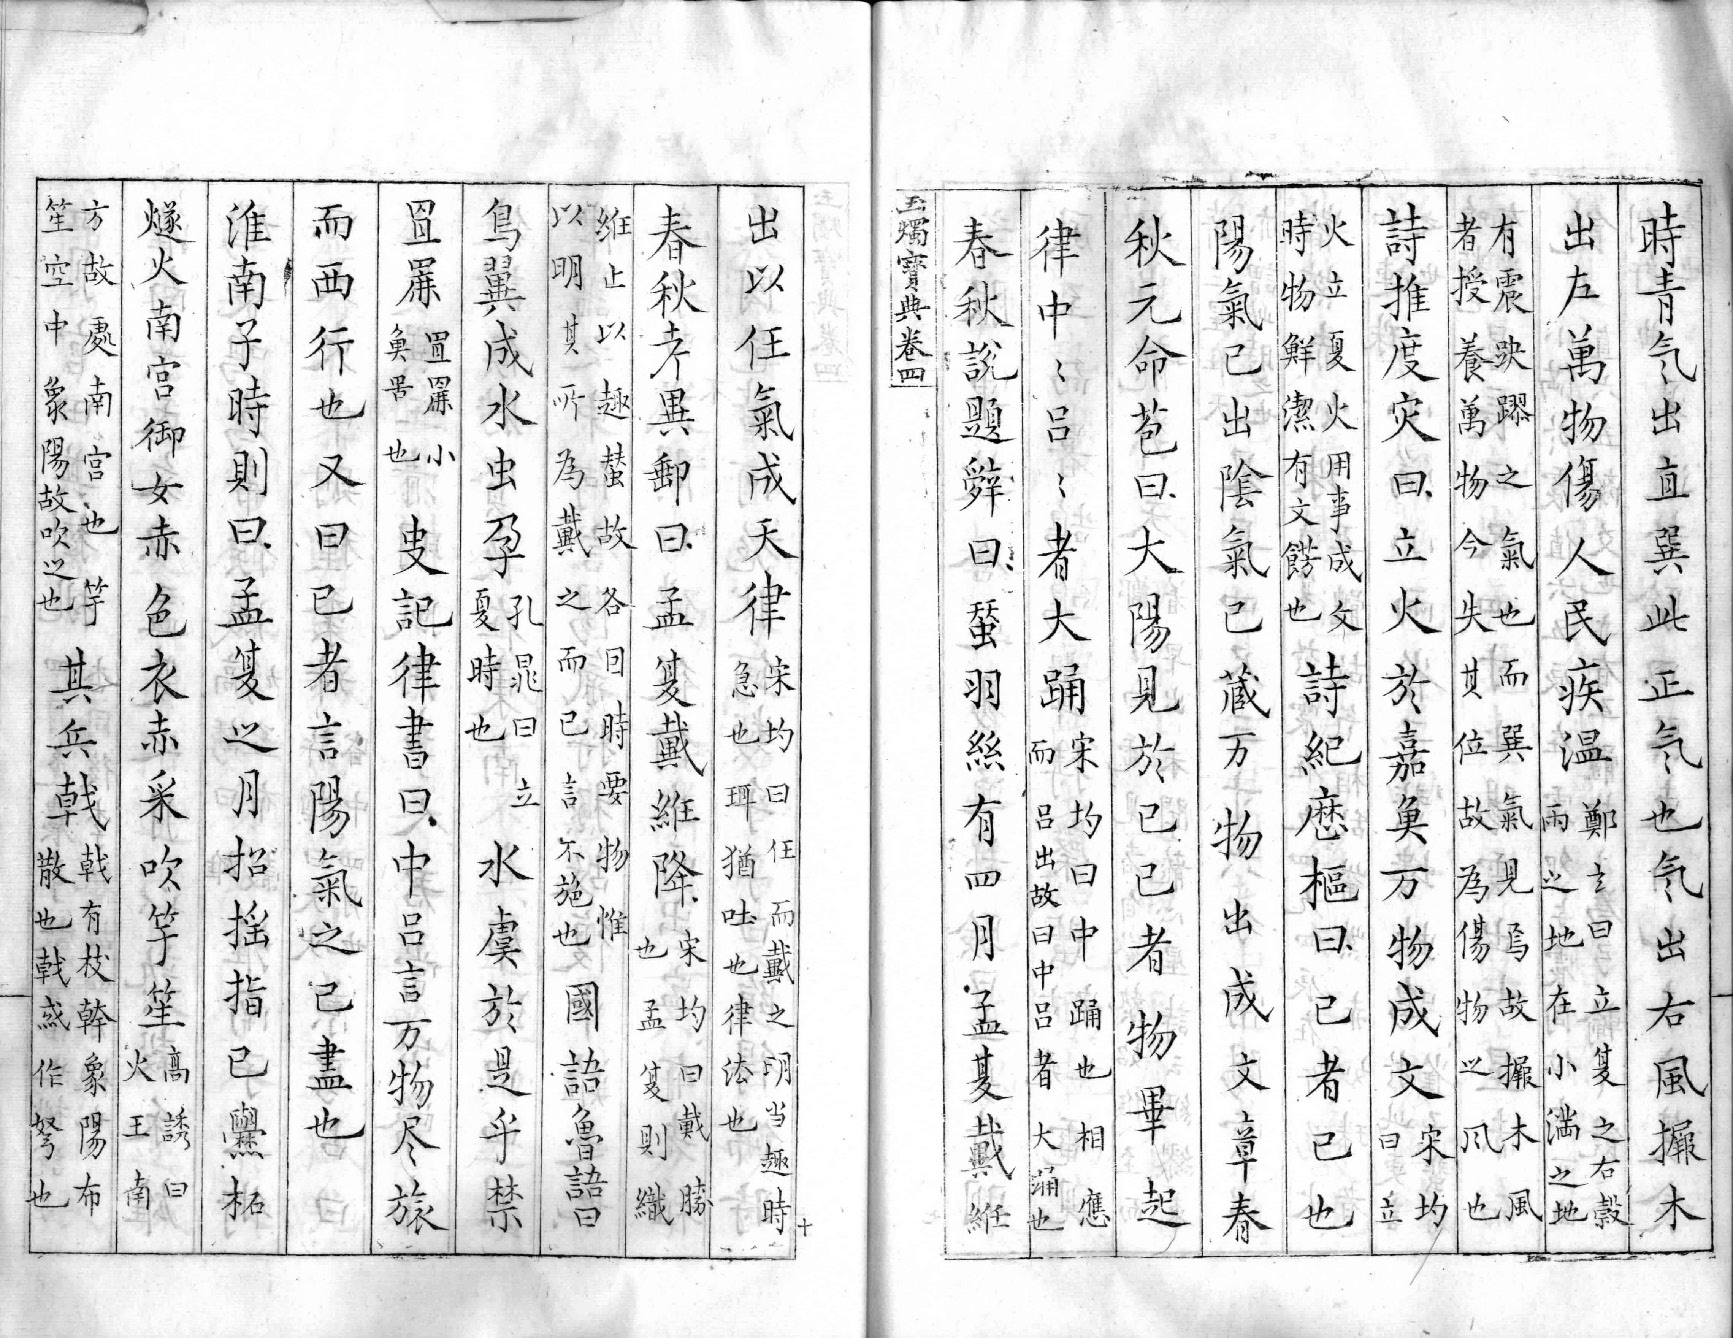 時青气出直巽此正气也气出右風摧木
出左萬物傷人民疾温鄭玄曰立夏之右穀
雨之地在小満之地
有震欮蹘之氣也而巽氣見焉故摧木風
者授養萬物今失其位故為傷物之风也
詩推度灾曰立火於嘉奥万物成文宋均
曰立
火立夏火火用事成文
時物鮮潔有文餝也詩紀厯樞曰巳者已也
陽氣已出陰氣已蔵万物出成文章春
秋元命苞曰大陽見於巳巳者物畢起
律中〻呂〻者大踊宋均曰中踊也相應
而呂出故曰中呂者大踊也
春秋說題辭曰蚕羽絲有四月孟夏戴絍
玉燭寶典卷四
出以任氣成天律宋均曰任而戴之明当趣時
急也珥猶吐也律法也
春秋考異郵曰孟夏戴絍降宋均曰戴勝
也孟夏則織
絍止以趣蚕故各曰時要物惟
以明其所為戴之而已言不施也國語魯語曰
鳥翼成水虫孕孔晁曰立
夏時也水虞於是乎禁
罝罻罝罻小
奥罟也史記律書曰中呂言万物尽旅
而西行也又曰巳者言陽氣之已盡也
淮南子時則曰孟夏之月招摇指巳爨柘
燧火南宫御女赤色衣赤采吹竽笙高誘曰
火王南
方故處南宫〻也竽
笙空中象陽故吹之也其兵戟戟有枝幹象陽布
散也戟或作弩也
十